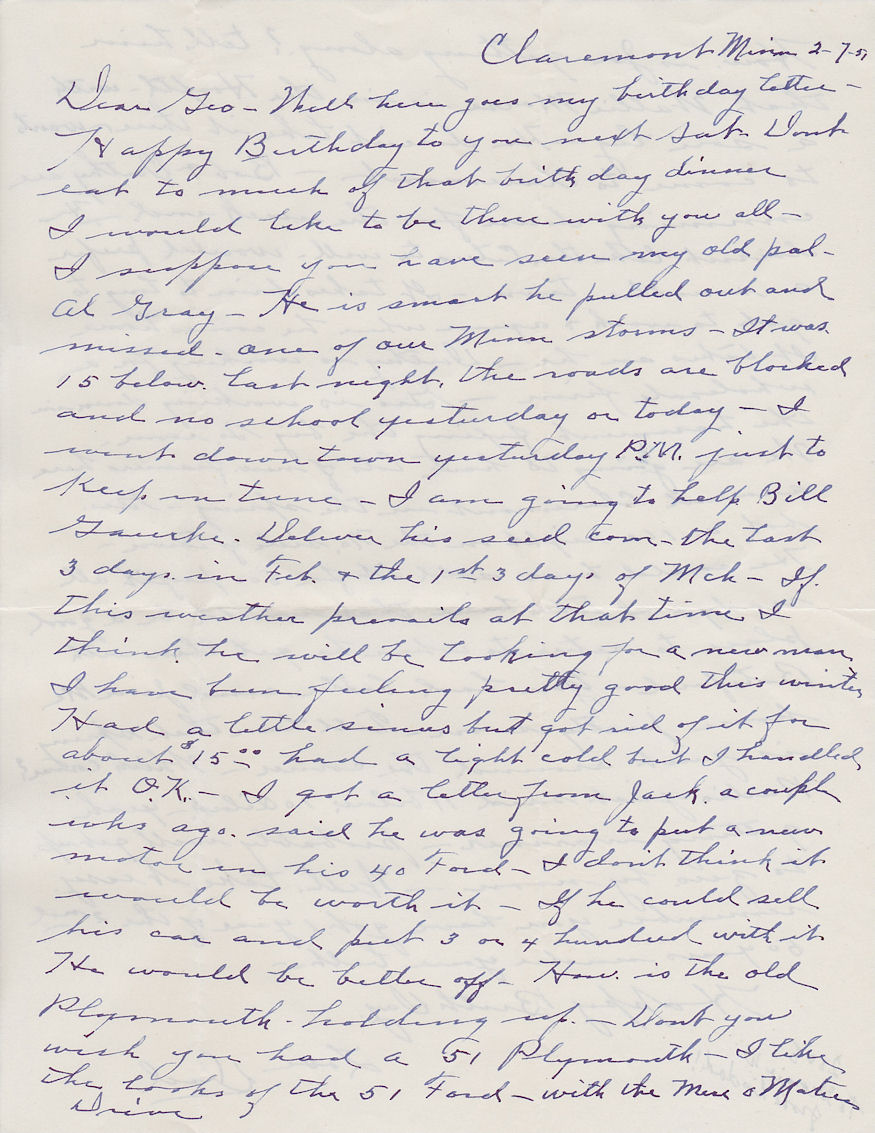 Claremont Minn 2-7-51
Dear Geo - Well here goes my birthday letter -
Happy Birthday to you next Sat. Dont
eat to much of that birthday dinner
I would like to be there with you all -
I suppose you have seen my old pal -
Al Gray - He is smart he pulled out and
missed - one of our Minn storms - It was
15 below. last night, the roads are blocked
and no school yesterday or today - I
went down town yesterday P.M. just to
Keep in tune - I am going to help Bill
Deliver his seed corn - the last
3 days. in Feb. + the 1st 3 days of Mch - If.
this weather prevails at that time I
think he will be looking for a new man
I have been feeling pretty good this winter
Had a little sinus but got rid of it for
about $15.00 had a light cold but I handled
it O.K. - I got a letter from Jack. a couple
wks ago. said he was going to put a new
motor in his 40 Ford - I dont think it
would be worth it - If he could sell
his car and put 3 or 4 hundred with it
He would be better off - How. is the old
Plymouth - holding up. - Dont you
wish you had a 51 Plymouth - I like
the looks of the 51 Ford - with the Merc o Matic
Drive